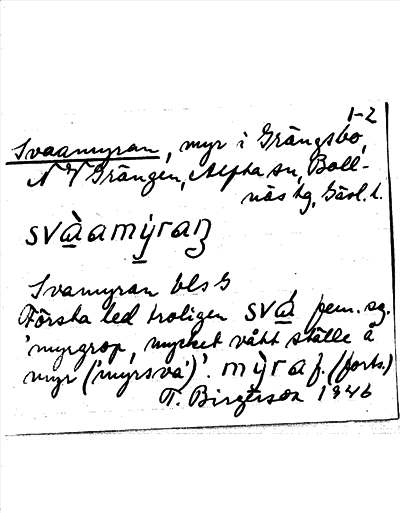 1-2
Svaamyran, myr i Grängsbo,
N V Grängen, Alfta sn, Boll-
näs tg, Gävl. l.
svàamýraŋ
Svamyran bls G
Första led troligen svá fem. sg.
'myrgrop, mycket vått ställe å
myr ('myrsvå)'. mỳra f. (forts.)
T. Birgerson 1946